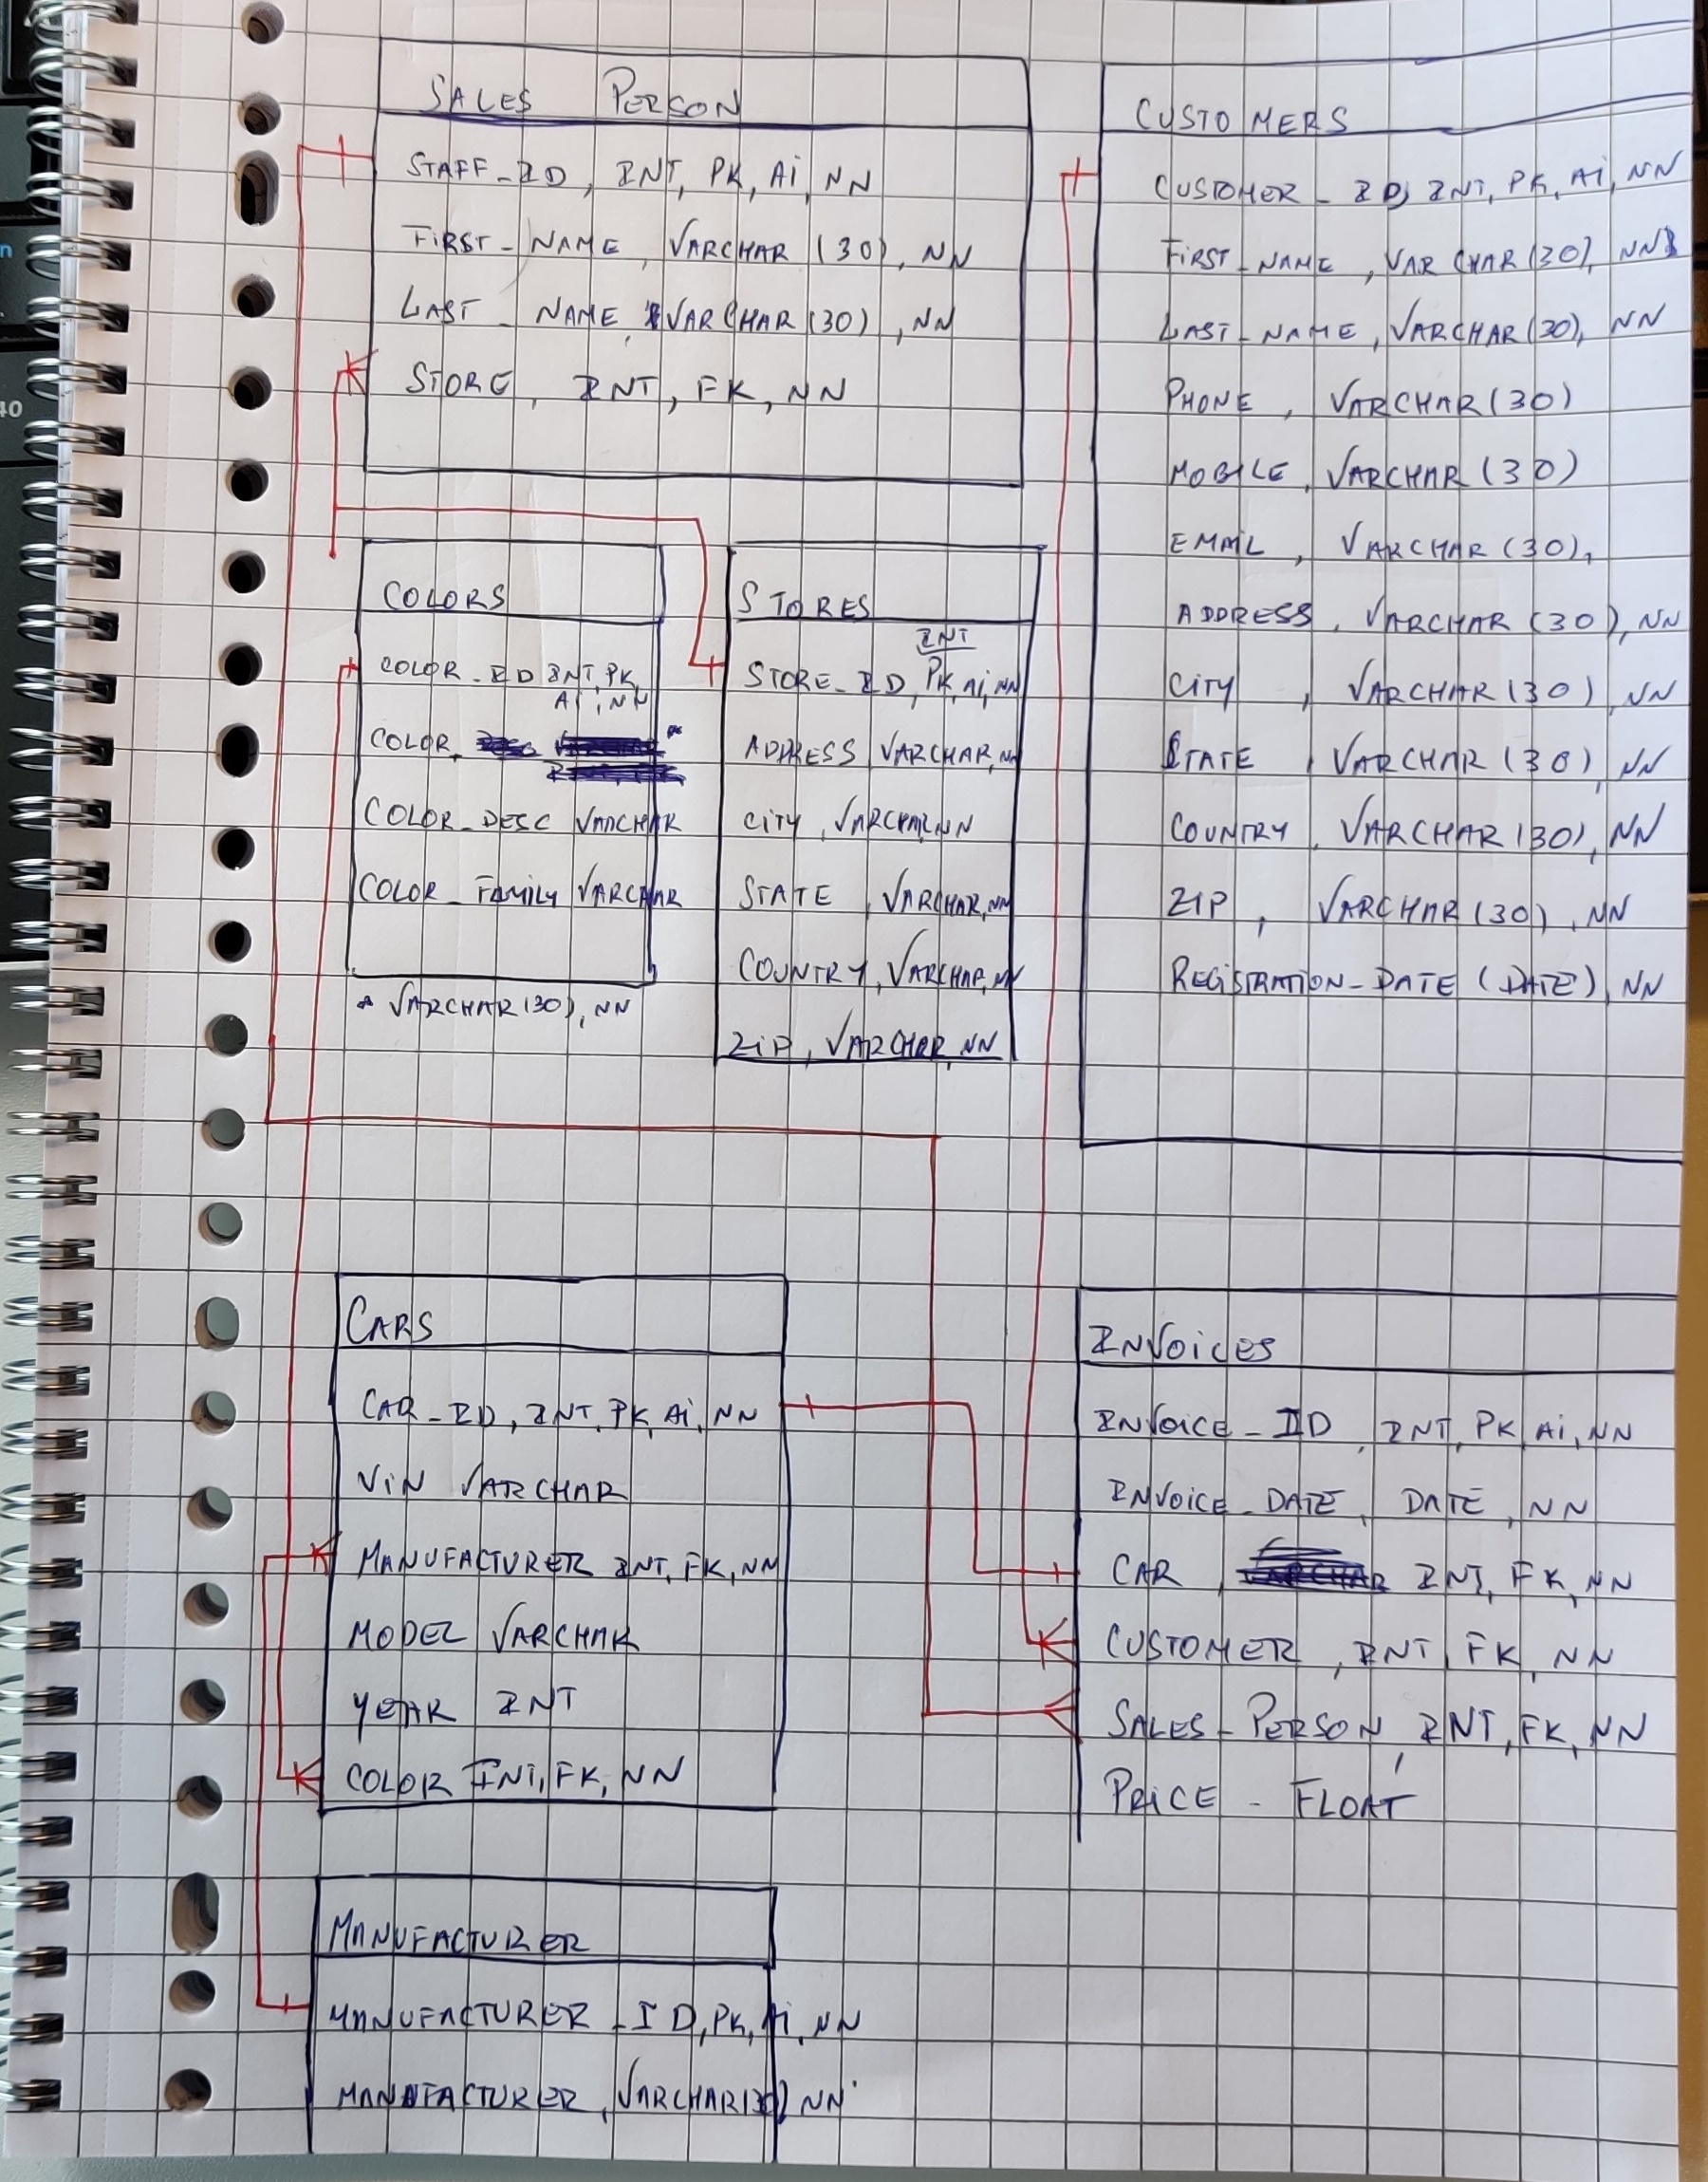 SALES PERSON
STAFF_ID, INT, PK, Ai, NN
FiRST_NAME, VARCHAR (30), NN
LAST_NAME, VARCHAR (30), NN
STORE, INT, FK, NN
CUSTOMERS
CUSTOMER_ID, INT, PK, Ai, NN
FiRST_NAME, VARCHAR (30), NN
LAST_NAME, VARCHAR (30), NN
PHONE, VARCHAR (30)
MOBILE, VARCHAR (30)
EMAIL, VARCHAR (30),
ADDRESS, VARCHAR (30), NN
CiTY, VARCHAR (30), NN
STATE, VARCHAR (30), NN
COUNTRY, VARCHAR (30), NN
ZIP, VARCHAR (30), NN
REGiSTRATION_DATE (DATE), NN
COLORS
COLOR_ID INT, PK,
Ai, NN
COLOR, *
COLOR_DESC VARCHAR
COLOR_FAMiLY VARCHAR
* VARCHAR (30), NN
STORES
INT
STORE_ID, PK, Ai, NN
ADDRESS VARCHAR, NN
CiTY, VARCHAR, NN
STATE, VARCHAR, NN
COUNTRY, VARCHAR, NN
ZiP, VARCHAR, NN
CARS
CAR_ID, INT, PK, Ai, NN
ViN VARCHAR
MANUFACTURER INT, FK, NN
MODEL VARCHAR
YEAR INT
COLOR INT, FK, NN
INVOiCES
INVOiCE_ID, INT, PK, Ai, NN
INVOiCE_DATE, DATE, NN
CAR, INT, FK, NN
CUSTOMER, INT, FK, NN
SALES_PERSON, INT, FK, NN
PRiCE - FLOAT
MANUFACTURER
MANUFACTURER_ID, PK, Ai, NN
MANUFACTURER, VARCHAR (30) NN